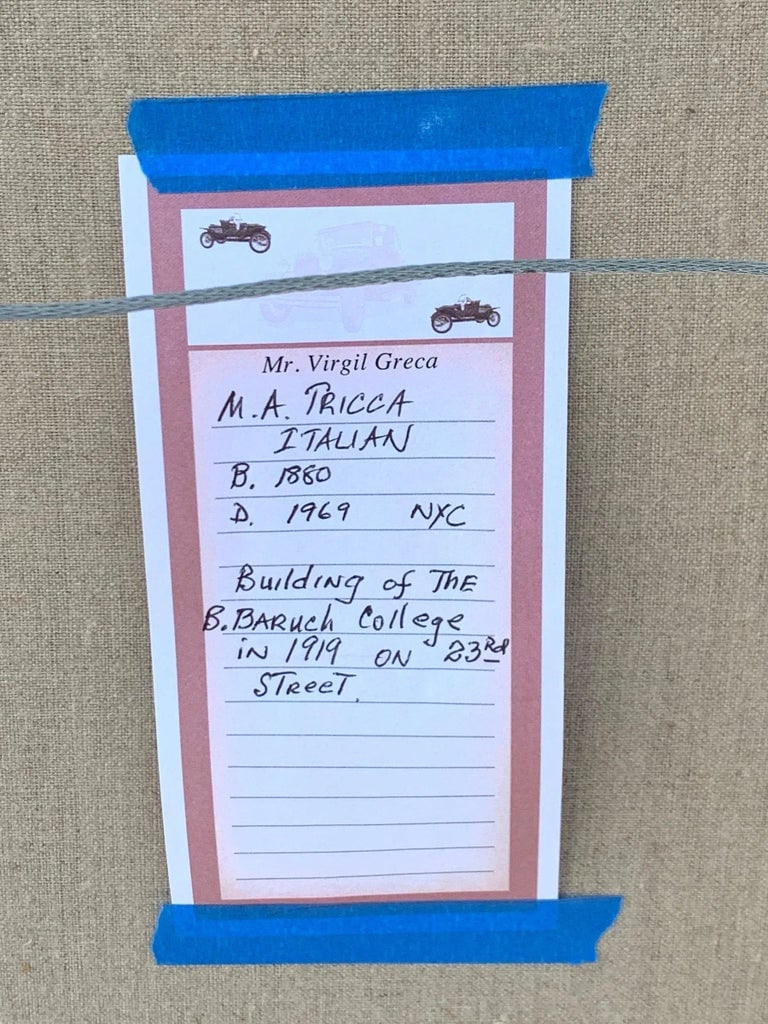 Mr. Virgil Greca
M.A. TRICCA
ITALIAN
B. 1880
D. 1969 NYC
Building of THE
B. BARuch College
iN 1919 ON 23Rd
STreeT.